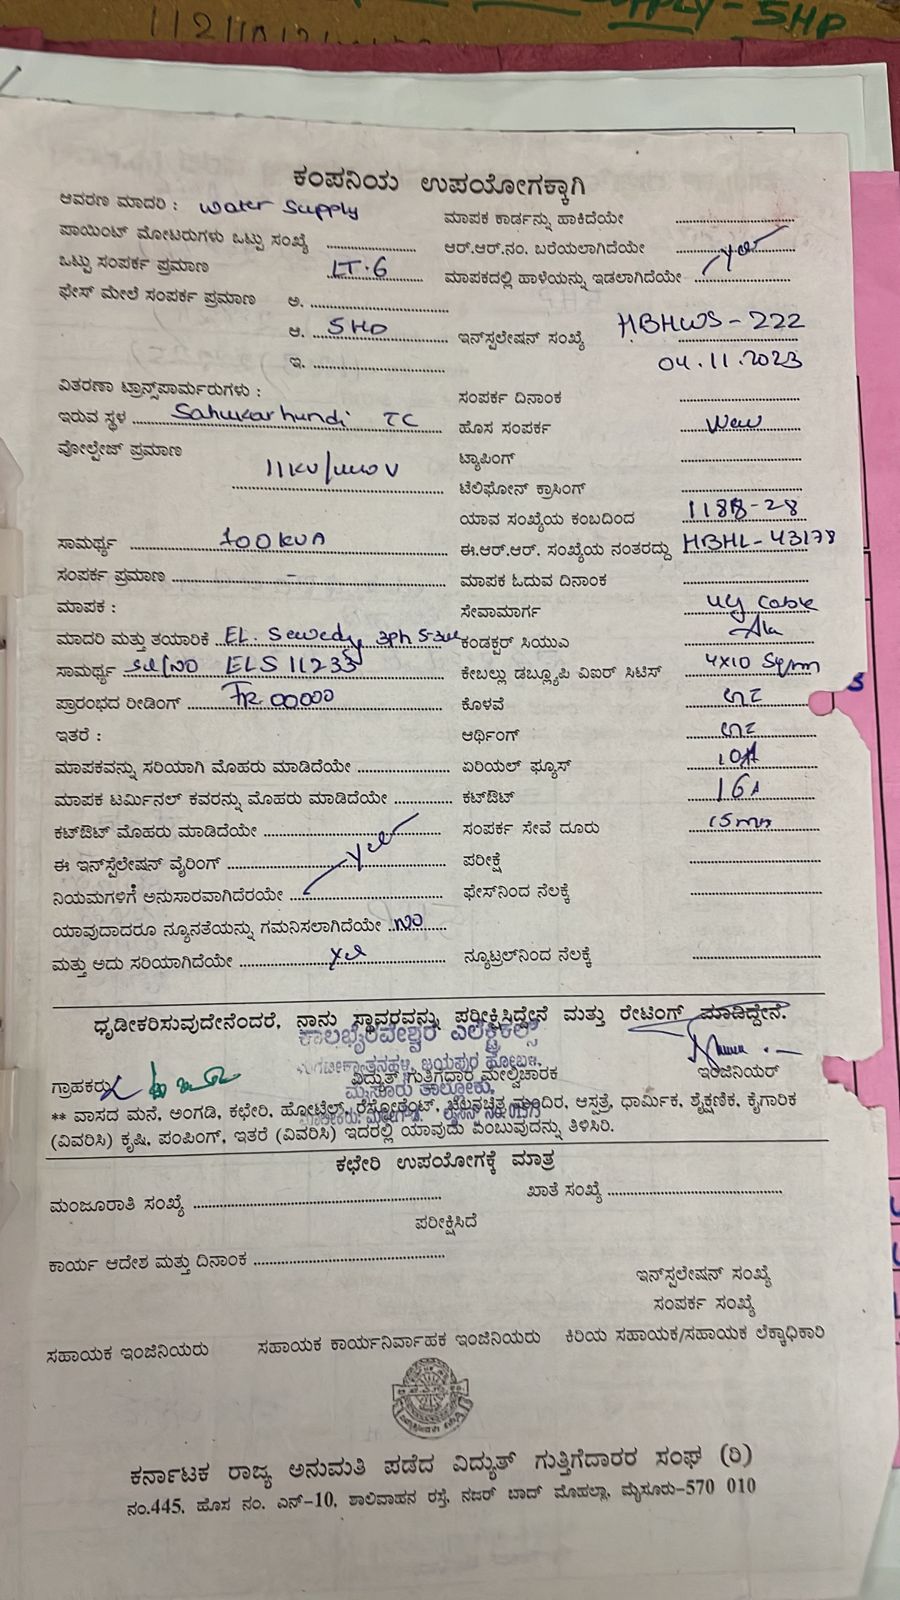 SUPPLY-5HP
ಕಂಪನಿಯ ಉಪಯೋಗಕ್ಕಾಗಿ
ಆವರಣ ಮಾದರಿ : Water Supply ಮಾಪಕ ಕಾರ್ಡನ್ನು ಹಾಕಿದೆಯೇ
ಪಾಯಿಂಟ್ ಮೋಟರುಗಳು ಒಟ್ಟು ಸಂಖ್ಯೆ ಆರ್.ಆರ್.ನಂ. ಬರೆಯಲಾಗಿದೆಯೇ yes
ಒಟ್ಟು ಸಂಪರ್ಕ ಪ್ರಮಾಣ LT-6 ಮಾಪಕದಲ್ಲಿ ಹಾಳೆಯನ್ನು ಇಡಲಾಗಿದೆಯೇ
ಫೇಸ್ ಮೇಲೆ ಸಂಪರ್ಕ ಪ್ರಮಾಣ ಅ.
ಆ. 5HP ಇನ್‌ಸ್ಪಲೇಷನ್ ಸಂಖ್ಯೆ HBHWS-222
ಇ. 04.11.2023
ವಿತರಣಾ ಟ್ರಾನ್ಸ್‌ಪಾರ್ಮರುಗಳು : ಸಂಪರ್ಕ ದಿನಾಂಕ
ಇರುವ ಸ್ಥಳ Sahukarhundi TC ಹೊಸ ಸಂಪರ್ಕ New
ವೋಲ್ಟೇಜ್ ಪ್ರಮಾಣ 11KV/440V ಟ್ಯಾಪಿಂಗ್
ಟೆಲಿಫೋನ್ ಕ್ರಾಸಿಂಗ್
ಯಾವ ಸಂಖ್ಯೆಯ ಕಂಬದಿಂದ
ಸಾಮರ್ಥ್ಯ 100KVA ಈ.ಆರ್.ಆರ್. ಸಂಖ್ಯೆಯ ನಂತರದ್ದು HBHL-43178
ಸಂಪರ್ಕ ಪ್ರಮಾಣ - ಮಾಪಕ ಓದುವ ದಿನಾಂಕ
ಮಾಪಕ : ಸೇವಾಮಾರ್ಗ UG Cable
ಮಾದರಿ ಮತ್ತು ತಯಾರಿಕೆ EL. Sewedy 3ph ಕಂಡಕ್ಟರ್ ಸಿಯುಎ
ಸಾಮರ್ಥ್ಯ Sl/no ELS 11233 ಕೇಬಲ್ಲು ಡಬ್ಲ್ಯೂಪಿ ವಿಐಆರ್ ಸಿಟಿಸ್ 4x10 Sqmm
ಪ್ರಾರಂಭದ ರೀಡಿಂಗ್ FR. 00000 ಕೊಳವೆ
ಇತರೆ : ಆರ್ಥಿಂಗ್
ಮಾಪಕವನ್ನು ಸರಿಯಾಗಿ ಮೊಹರು ಮಾಡಿದೆಯೇ ಏರಿಯಲ್ ಫ್ಯೂಸ್ 10A
ಮಾಪಕ ಟರ್ಮಿನಲ್ ಕವರನ್ನು ಮೊಹರು ಮಾಡಿದೆಯೇ ಕಟ್‌ಔಟ್ 16A
ಕಟ್‌ಔಟ್ ಮೊಹರು ಮಾಡಿದೆಯೇ ಸಂಪರ್ಕ ಸೇವೆ ದೂರು
ಈ ಇನ್‌ಸ್ಪೆಲೇಷನ್ ವೈರಿಂಗ್ yes ಪರೀಕ್ಷೆ
ನಿಯಮಗಳಿಗೆ ಅನುಸಾರವಾಗಿದೆರಯೇ ಫೇಸ್‌ನಿಂದ ನೆಲಕ್ಕೆ
ಯಾವುದಾದರೂ ನ್ಯೂನತೆಯನ್ನು ಗಮನಿಸಲಾಗಿದೆಯೇ NO
ಮತ್ತು ಅದು ಸರಿಯಾಗಿದೆಯೇ Yes ನ್ಯೂಟ್ರಲ್‌ನಿಂದ ನೆಲಕ್ಕೆ
ಧೃಡೀಕರಿಸುವುದೇನೆಂದರೆ, ನಾನು ಸ್ಥಾವರವನ್ನು ಪರೀಕ್ಷಿಸಿದ್ದೇನೆ ಮತ್ತು ರೇಟಿಂಗ್ ಮಾಡಿದ್ದೇನೆ.
ಕಾಲಭೈರವೇಶ್ವರ ಎಲೆಕ್ಟ್ರಿಕಲ್ಸ್
ಜಯಪುರ ಹೋಬಳಿ,
ಗ್ರಾಹಕರು ವಿದ್ಯುತ್ ಗುತ್ತಿಗೆದಾರ ಮೇಲ್ವಿಚಾರಕ ಇಂಜಿನಿಯರ್
ಮೈಸೂರು ತಾಲ್ಲೋಕು,
** ವಾಸದ ಮನೆ, ಅಂಗಡಿ, ಕಛೇರಿ, ಹೋಟೆಲ್, ರೆಸ್ಟೋರೆಂಟ್, ಚಲನಚಿತ್ರ ಮಂದಿರ, ಆಸ್ಪತ್ರೆ, ಧಾರ್ಮಿಕ, ಶೈಕ್ಷಣಿಕ, ಕೈಗಾರಿಕ
(ವಿವರಿಸಿ) ಕೃಷಿ, ಪಂಪಿಂಗ್, ಇತರೆ (ವಿವರಿಸಿ) ಇದರಲ್ಲಿ ಯಾವುದು ಎಂಬುವುದನ್ನು ತಿಳಿಸಿರಿ.
ಕಛೇರಿ ಉಪಯೋಗಕ್ಕೆ ಮಾತ್ರ
ಮಂಜೂರಾತಿ ಸಂಖ್ಯೆ ಖಾತೆ ಸಂಖ್ಯೆ
ಪರೀಕ್ಷಿಸಿದೆ
ಕಾರ್ಯ ಆದೇಶ ಮತ್ತು ದಿನಾಂಕ
ಇನ್‌ಸ್ಪಲೇಷನ್ ಸಂಖ್ಯೆ
ಸಂಪರ್ಕ ಸಂಖ್ಯೆ
ಸಹಾಯಕ ಇಂಜಿನಿಯರು ಸಹಾಯಕ ಕಾರ್ಯನಿರ್ವಾಹಕ ಇಂಜಿನಿಯರು ಕಿರಿಯ ಸಹಾಯಕ/ಸಹಾಯಕ ಲೆಕ್ಕಾಧಿಕಾರಿ
ಕರ್ನಾಟಕ ರಾಜ್ಯ ಅನುಮತಿ ಪಡೆದ ವಿದ್ಯುತ್ ಗುತ್ತಿಗೆದಾರರ ಸಂಘ (ರಿ)
ನಂ.445, ಹೊಸ ನಂ. ಎನ್-10, ಶಾಲಿವಾಹನ ರಸ್ತೆ, ನಜರ್ ಬಾದ್ ಮೊಹಲ್ಲಾ, ಮೈಸೂರು-570 010